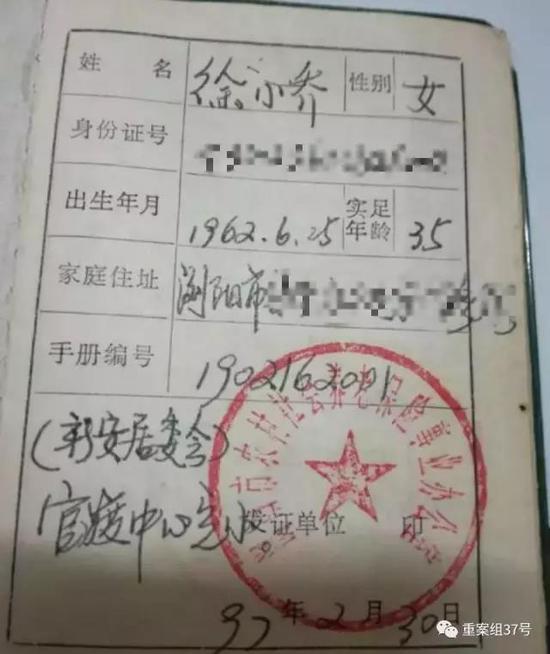 姓名 徐小乔 性别 女
身份证号
出生年月 1962.6.25 实足年龄 35
家庭住址 浏阳市
手册编号 1902162001
(新安居委会)
官渡中心完小
发证单位 印
市农村社会养老保险事业办公
97年2月30日
重案组37号